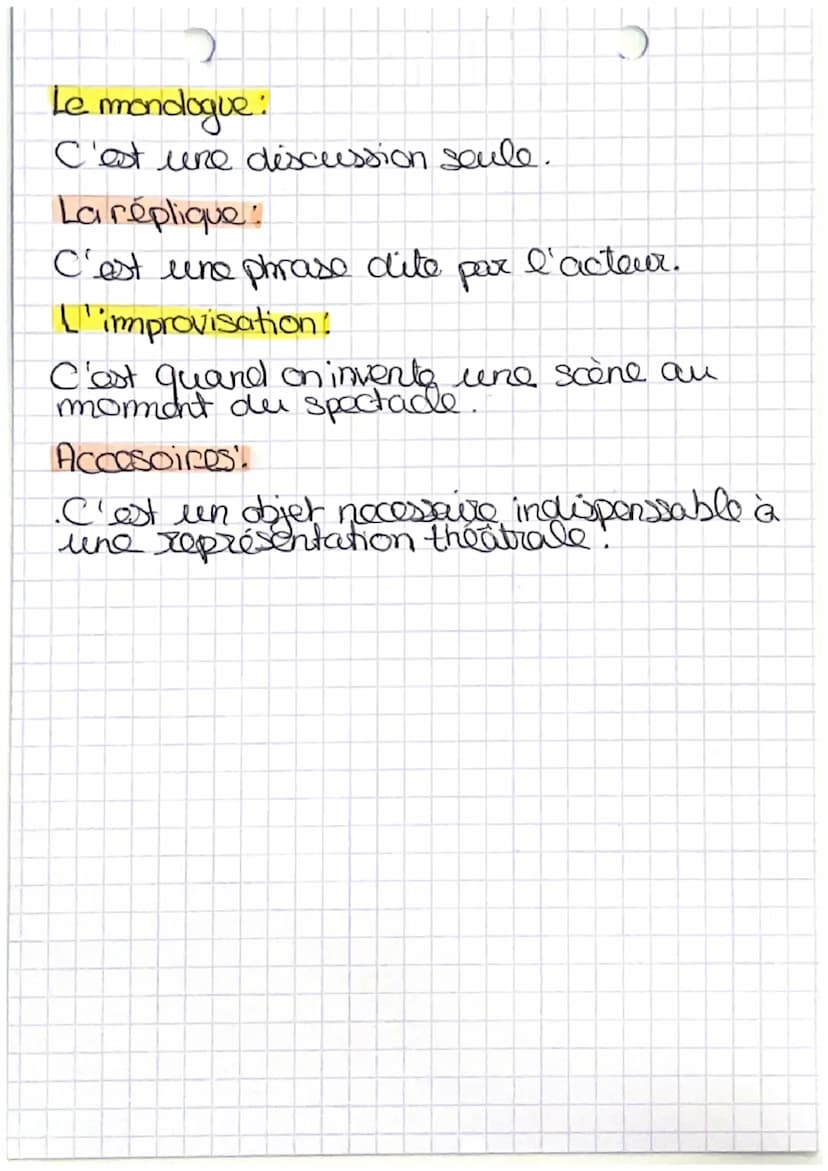 Le monologue :
C'est une discussion seule.
La réplique :
C'est une phrase dite par l'acteur.
L'improvisation :
C'est quand on invente une scène au
moment du spectacle.
Accesoires :
.C'est un objet necessaire indispenssable à
une représentation théâtrale.